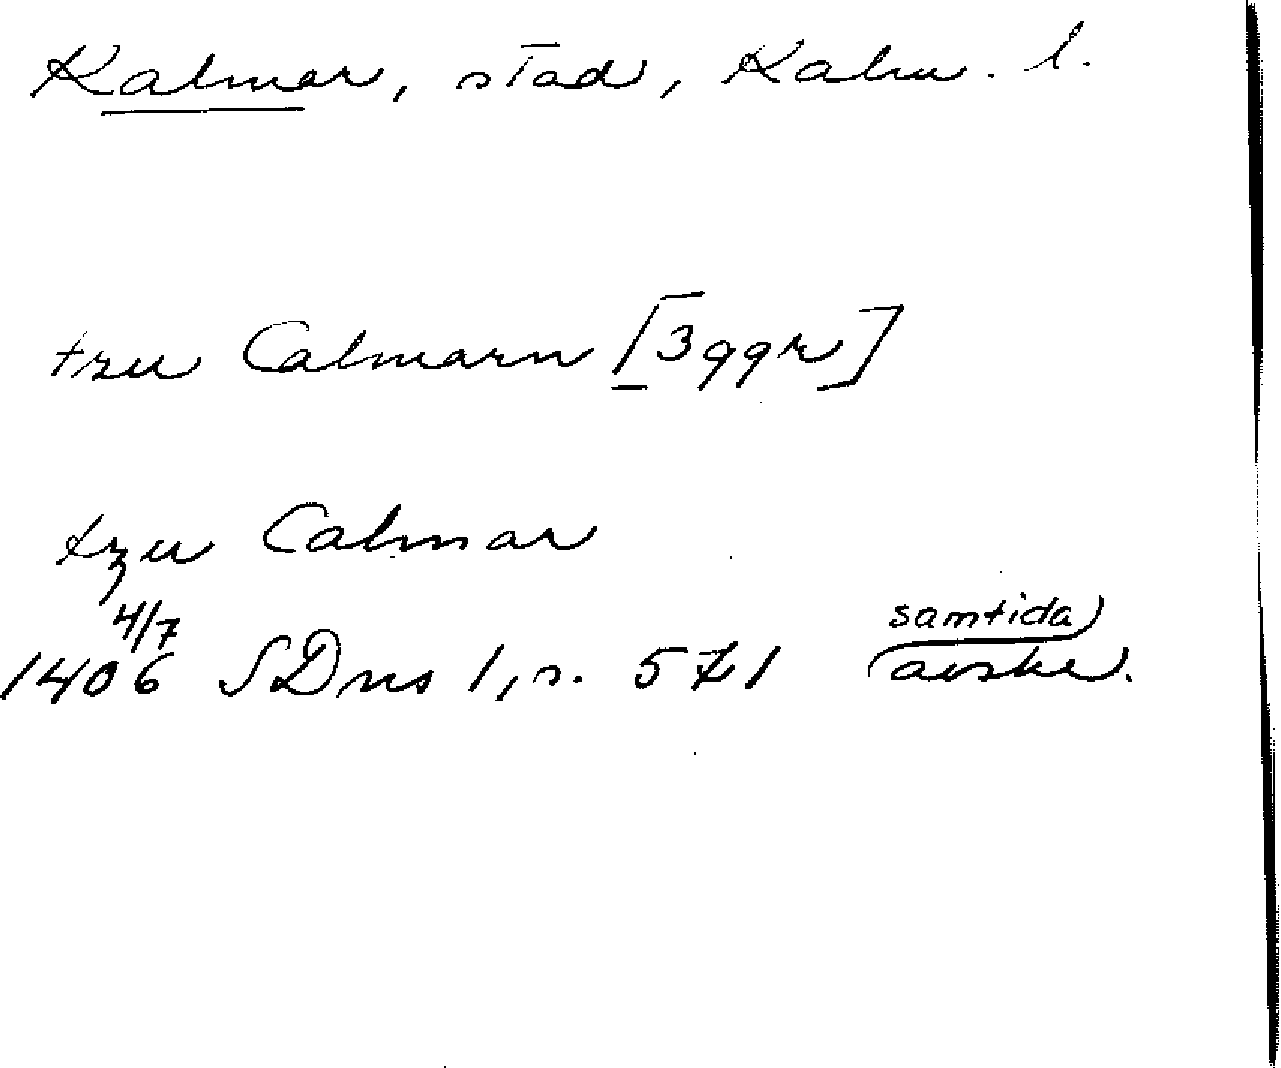 Kalmar, stad, Kalm. l.
tzu Calmarn [3 ggr]
tzu Calmar
4/7
1406 SDns 1, s. 571 samtida avskr.